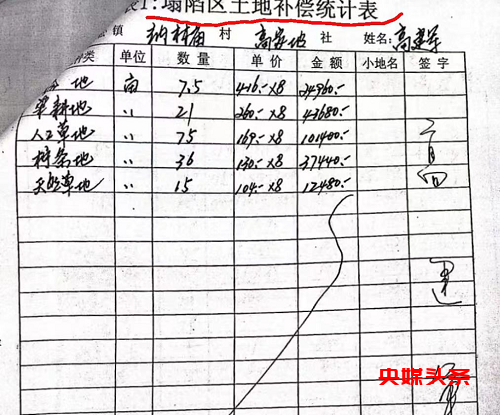 表1:塌陷区土地补偿统计表
镇 纳林庙 村 高家地 社 姓名:高建军
种类 单位 数量 单价 金额 小地名 签字
地 亩 7.5 416.-×8 24960.-
旱耕地 〃 21 260.-×8 43680.-
人工草地 〃 75 169.-×8 101400.-
柠条地 〃 36 130.-×8 37440.-
天然草地 〃 15 104.-×8 12480.-
央媒头条